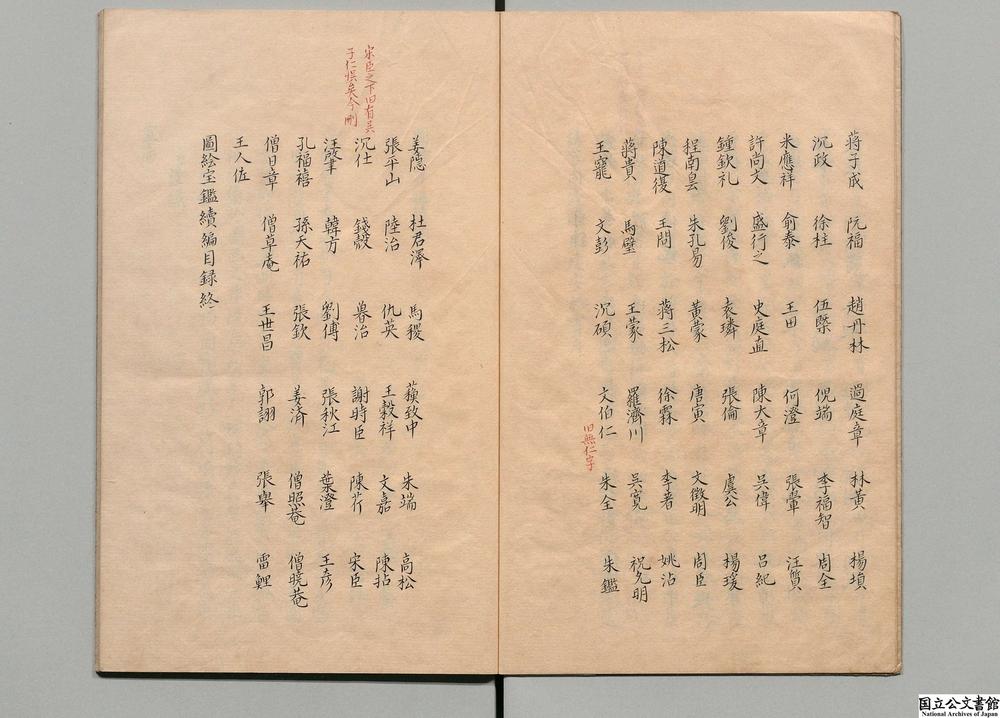 蒋子成 阮福 趙丹林 過庭章 林黃 楊塤
沉政 徐柱 伍槩 倪端 李福智 周全
米應祥 俞泰 王田 何澄 張翬 汪質
許尚文 盛行之 史庭直 陳大章 吳偉 呂紀
鍾欽礼 劉俊 袁璘 張倫 虞公 楊瑗
程南昙 朱孔易 黃蒙 唐寅 文徵明 周臣
陳道復 王問 蒋三松 徐霖 李著 姚沾
蒋貴 馬璧 王蒙 羅濟川 吳寬 祝允明
王寵 文彭 沉碩 文伯仁 朱全 朱鑑
旧無仁字
宋臣之下旧有吳
子仁悮矣今刪
姜隠 杜君澤 馬稷 蘋致中 朱端 高松
張平山 陸治 仇英 王榖祥 文嘉 陳拈
沉仕 錢榖 暮治 謝時臣 陳芹 宋臣
汪肇 韓方 劉傅 張秋江 葉澄 王彦
孔福禧 孫天祐 張欽 姜済 僧照菴 僧晓菴
僧日章 僧草庵 王世昌 郭詡 張舉 雷鯉
王人佐
圖絵宝鑑續編目録終
国立公文書館
National Archives of Japan